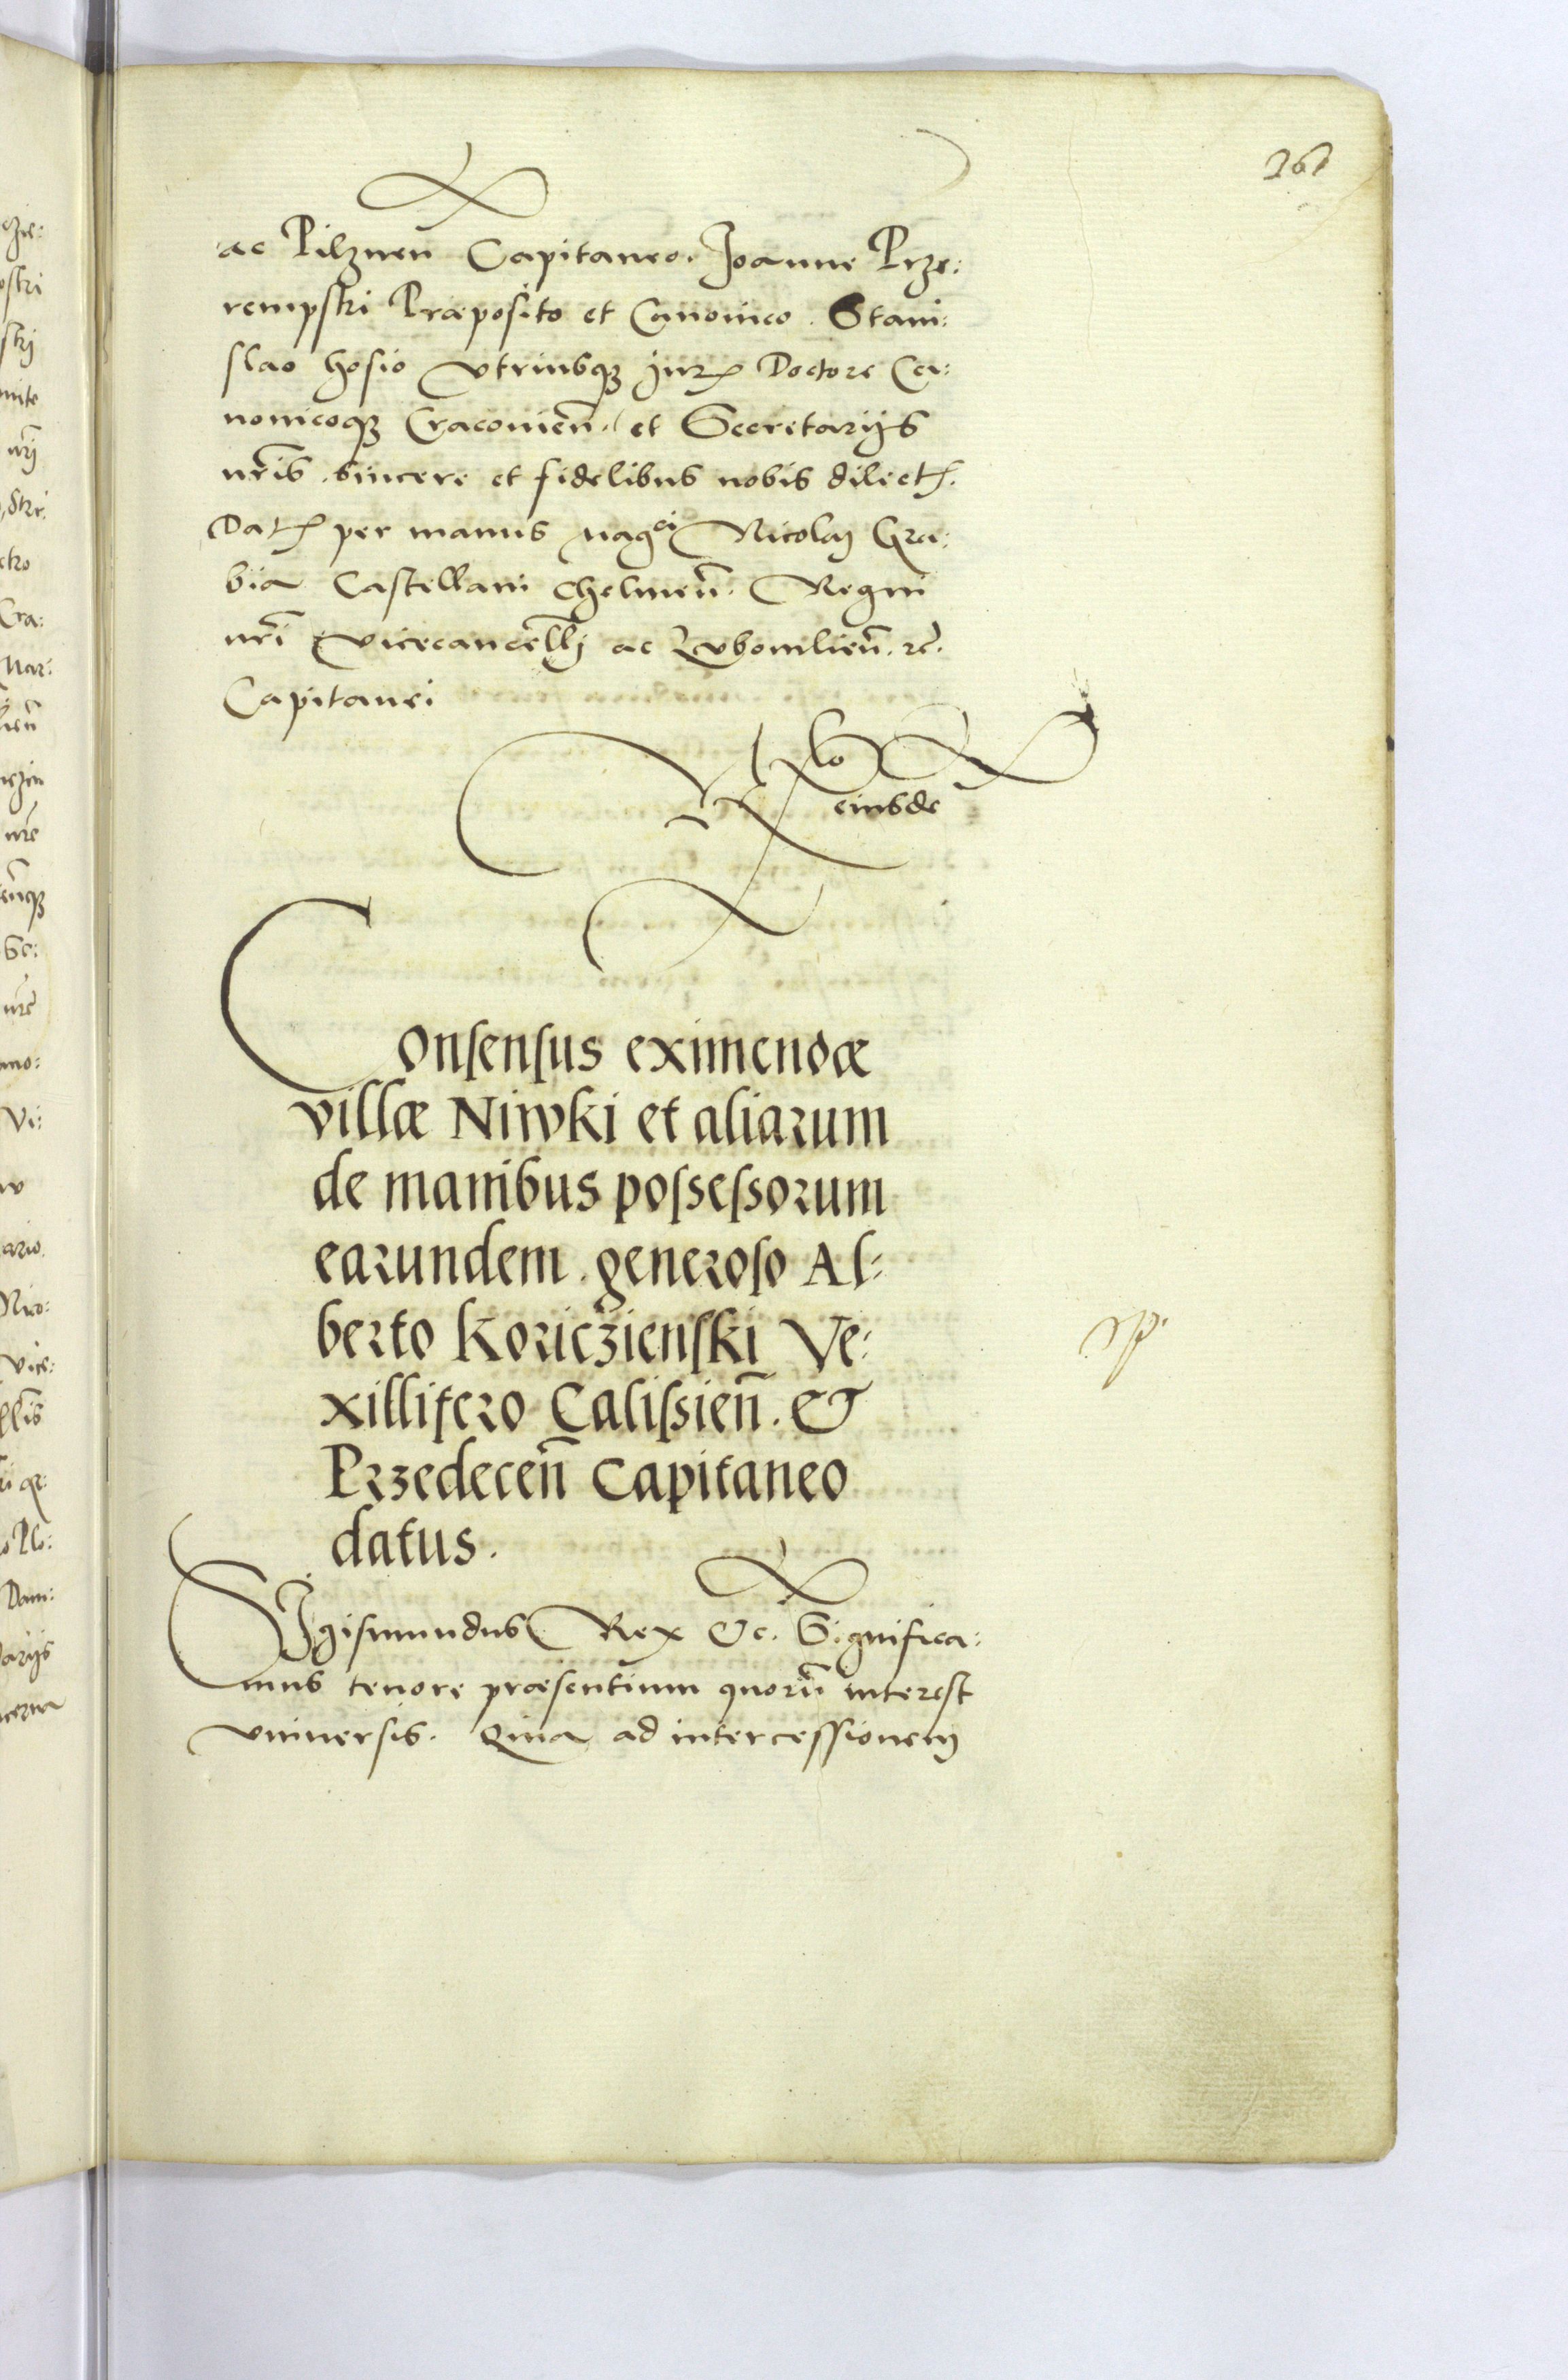 261
ac Pilznen̄ Capitaneo. Joanne Prze:
rempski Præposito et Canonico. Stani:
slao Hosio vtriusqꝫ Juꝝ Doctore Ca:
nonicoqꝫ Cracovien̄. et Secretarijs
nr̄is. sincere et fidelibus nobis dilect.
Dat per manus Mag^ci Nicolaj Gra:
bia Castellani Chelmen̄. Regni
nr̄i vicecancell̄j ac Lvbomlien̄. rc̄.
Capitanei
Rlo
eiusde
Consensus eximendæ
villæ Niwki et aliarum
de manibus possessorum
earundem. generoso Al:
berto Koriczienski Ve:
xillifero Calissien̄. &
Przedecen̄ Capitaneo
datus.
Sigismundus Rex &c. Significa:
mus tenore præsentium quorū interest
vniversis. Quia ad intercessionem